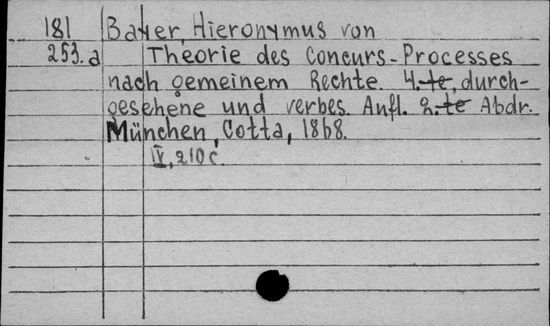 181 Bayer, Hieronymus von
253.a Theorie des Concurs-Processes
nach gemeinem Rechte. 4.te, durch-
gesehene und verbes. Aufl. 2.te Abdr.
München, Cotta, 1868.
IV, 210 c.